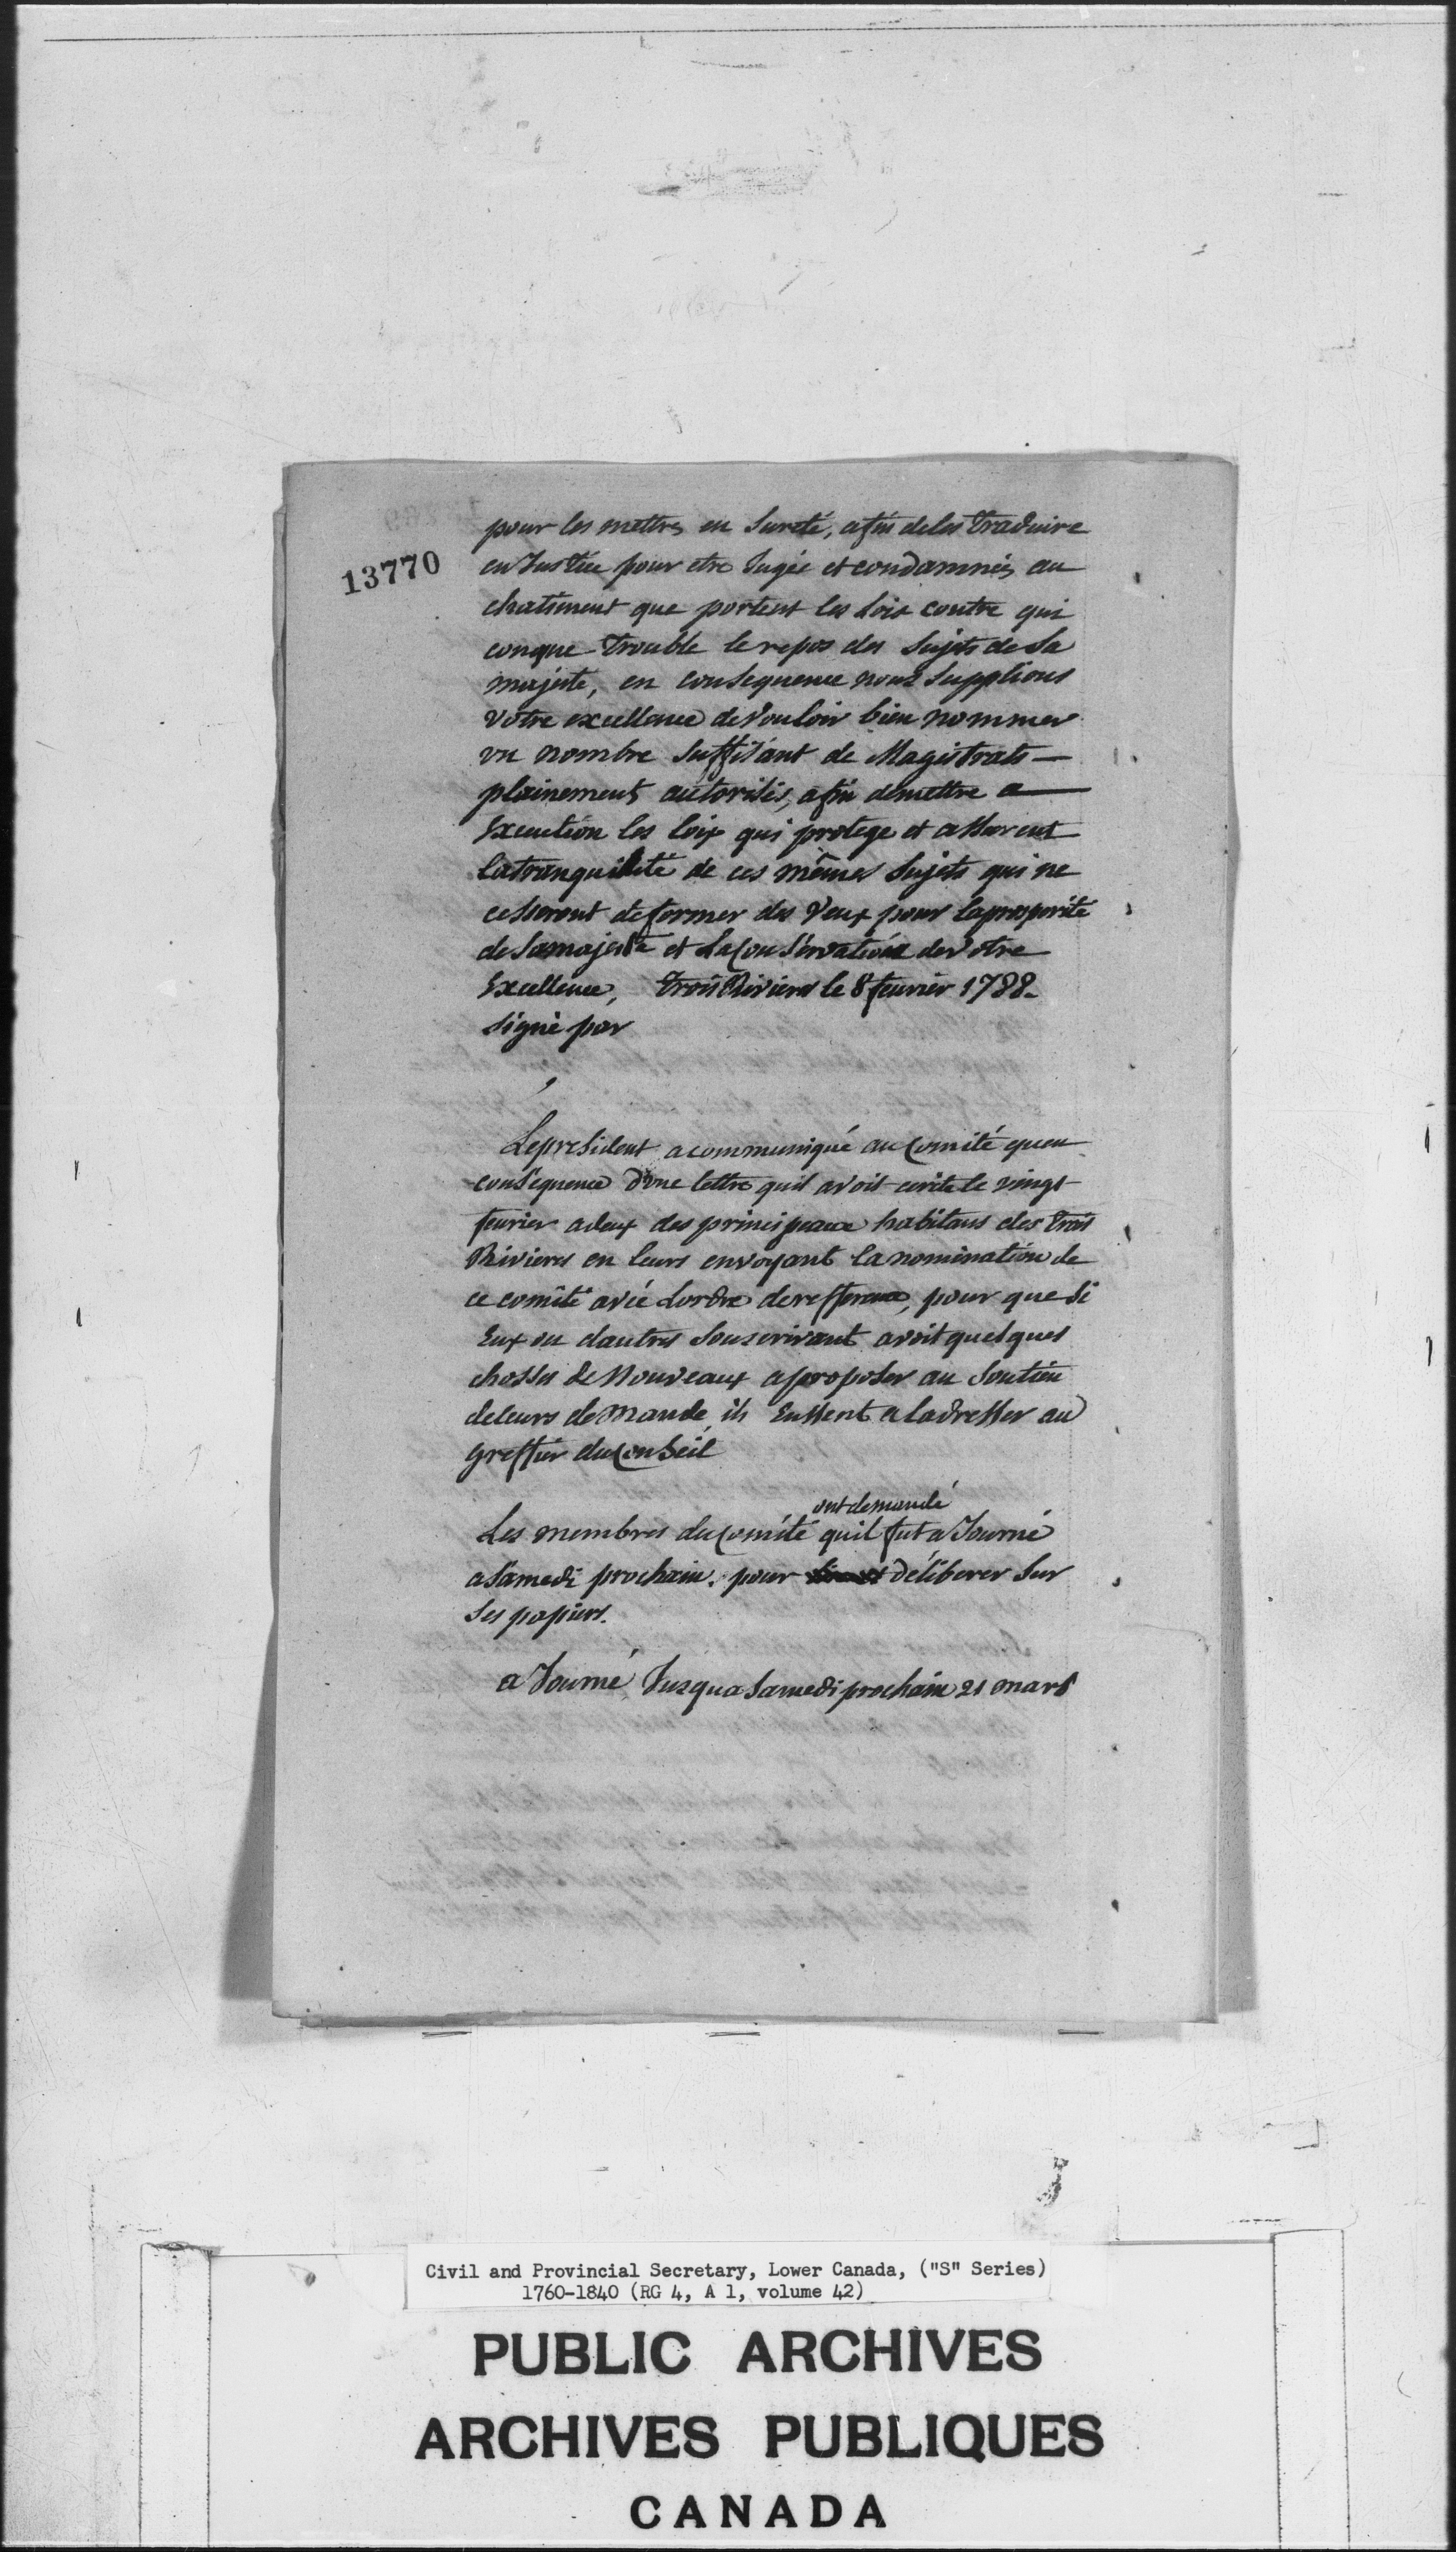 pour les mettre en Sureté, afin deles traduire
13770
en Justice pour etre Jugée et condamnés au
chatiment que portent les Loix contre qui
conque trouble le repos des Sujets de Sa
majesté, en consequence nous Supplions
Votre excellence de Vouloir bien nommer
un nombre Suffisant de Magistrats —
plainement autorisés, afin demettre a —
Execution les loix qui protege et assurent
latranquilité de ces mêmes Sujets qui ne
cesseront deformer des Veux pour laprosperité
de Samajesté et LaConservation deVotre
Excellence, trois Rivieres le 8 fevrier 1788.
Signé par
Lepresident acommuniqué auComité quen
consequence d'une lettre quil avoit ecrite le vingt
fevrier adeux des principeaux habitans des trois
Rivieres en leurs envoyant la nomination de
ce comité avec Lordre derefference, pour que Si
Eux ou dautres Souscrivant avoit quelques
chosses de Nouveaux aproposer au Soutien
deleurs demande, ils Eussent a ladresser au
Greffier duConseil
ont demandé
Les membres duComité quil fut a Journé
a Samedi prochain. pour déliberer Sur
Ses papiers.
a Journé Jusqua Samedi prochain 21 mars
Civil and Provincial Secretary, Lower Canada, ("S" Series)
1760-1840 (RG 4, A 1, volume 42)
PUBLIC ARCHIVES
ARCHIVES PUBLIQUES
CANADA